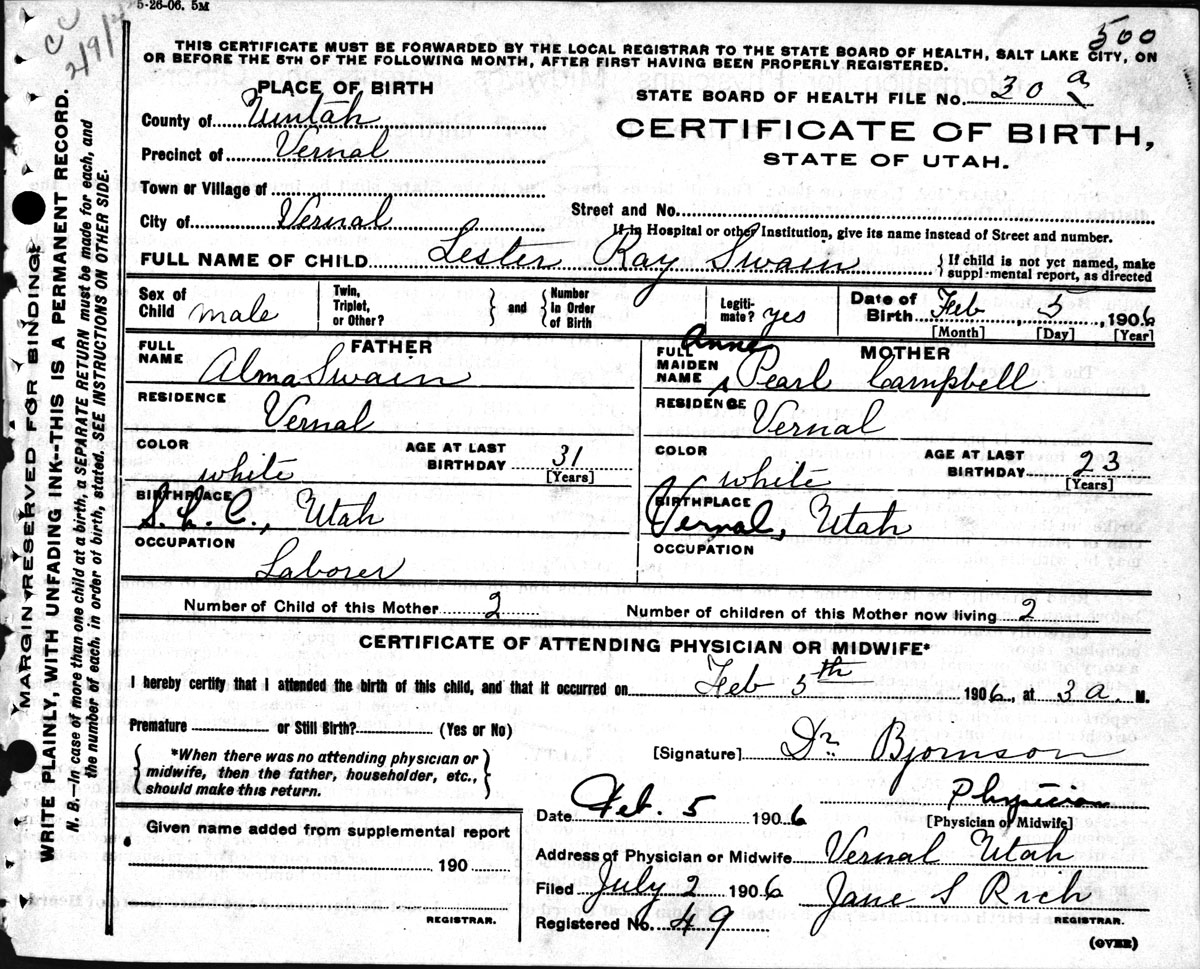 5-26-06. 5M
500
THIS CERTIFICATE MUST BE FORWARDED BY THE LOCAL REGISTRAR TO THE STATE BOARD OF HEALTH, SALT LAKE CITY, ON
OR BEFORE THE 5TH OF THE FOLLOWING MONTH, AFTER FIRST HAVING BEEN PROPERLY REGISTERED.
PLACE OF BIRTH
STATE BOARD OF HEALTH FILE No. 30 a
County of Uintah
CERTIFICATE OF BIRTH,
STATE OF UTAH.
Precinct of Vernal
Town or Village of
Street and No.
City of Vernal
If in Hospital or other Institution, give its name instead of Street and number.
FULL NAME OF CHILD Lester Ray Swain
{If child is not yet named, make
suppl-mental report, as directed
Sex of Child male
Twin, Triplet, or Other? } and { Number in Order of Birth
Legiti-mate? yes
Date of Birth Feb, 5, 1906
[Month] [Day] [Year]
FATHER
FULL NAME Alma Swain
RESIDENCE Vernal
COLOR white
AGE AT LAST BIRTHDAY 31
[Years]
BIRTHPLACE S. L. C., Utah
OCCUPATION Laborer
MOTHER
FULL MAIDEN NAME Anne Pearl Campbell
RESIDENCE Vernal
COLOR white
AGE AT LAST BIRTHDAY 23
[Years]
BIRTHPLACE Vernal, Utah
OCCUPATION
Number of Child of this Mother 2 Number of children of this Mother now living 2
CERTIFICATE OF ATTENDING PHYSICIAN OR MIDWIFE*
I hereby certify that I attended the birth of this child, and that it occurred on Feb 5th 1906, at 3 a. M.
Premature or Still Birth? (Yes or No)
*When there was no attending physician or
midwife, then the father, householder, etc.,
should make this return.
[Signature] Dr Bjornson
Date Feb. 5 1906 Physician
[Physician or Midwife]
Given name added from supplemental report
190
REGISTRAR.
Address of Physician or Midwife Vernal Utah
Filed July 2 1906 Jane S Rich
Registered No. 49 REGISTRAR.
(OVER)
MARGIN RESERVED FOR BINDING
WRITE PLAINLY, WITH UNFADING INK--THIS IS A PERMANENT RECORD.
N. B.—In case of more than one child at a birth, a SEPARATE RETURN must be made for each, and
the number of each, in order of birth, stated. SEE INSTRUCTIONS ON OTHER SIDE.